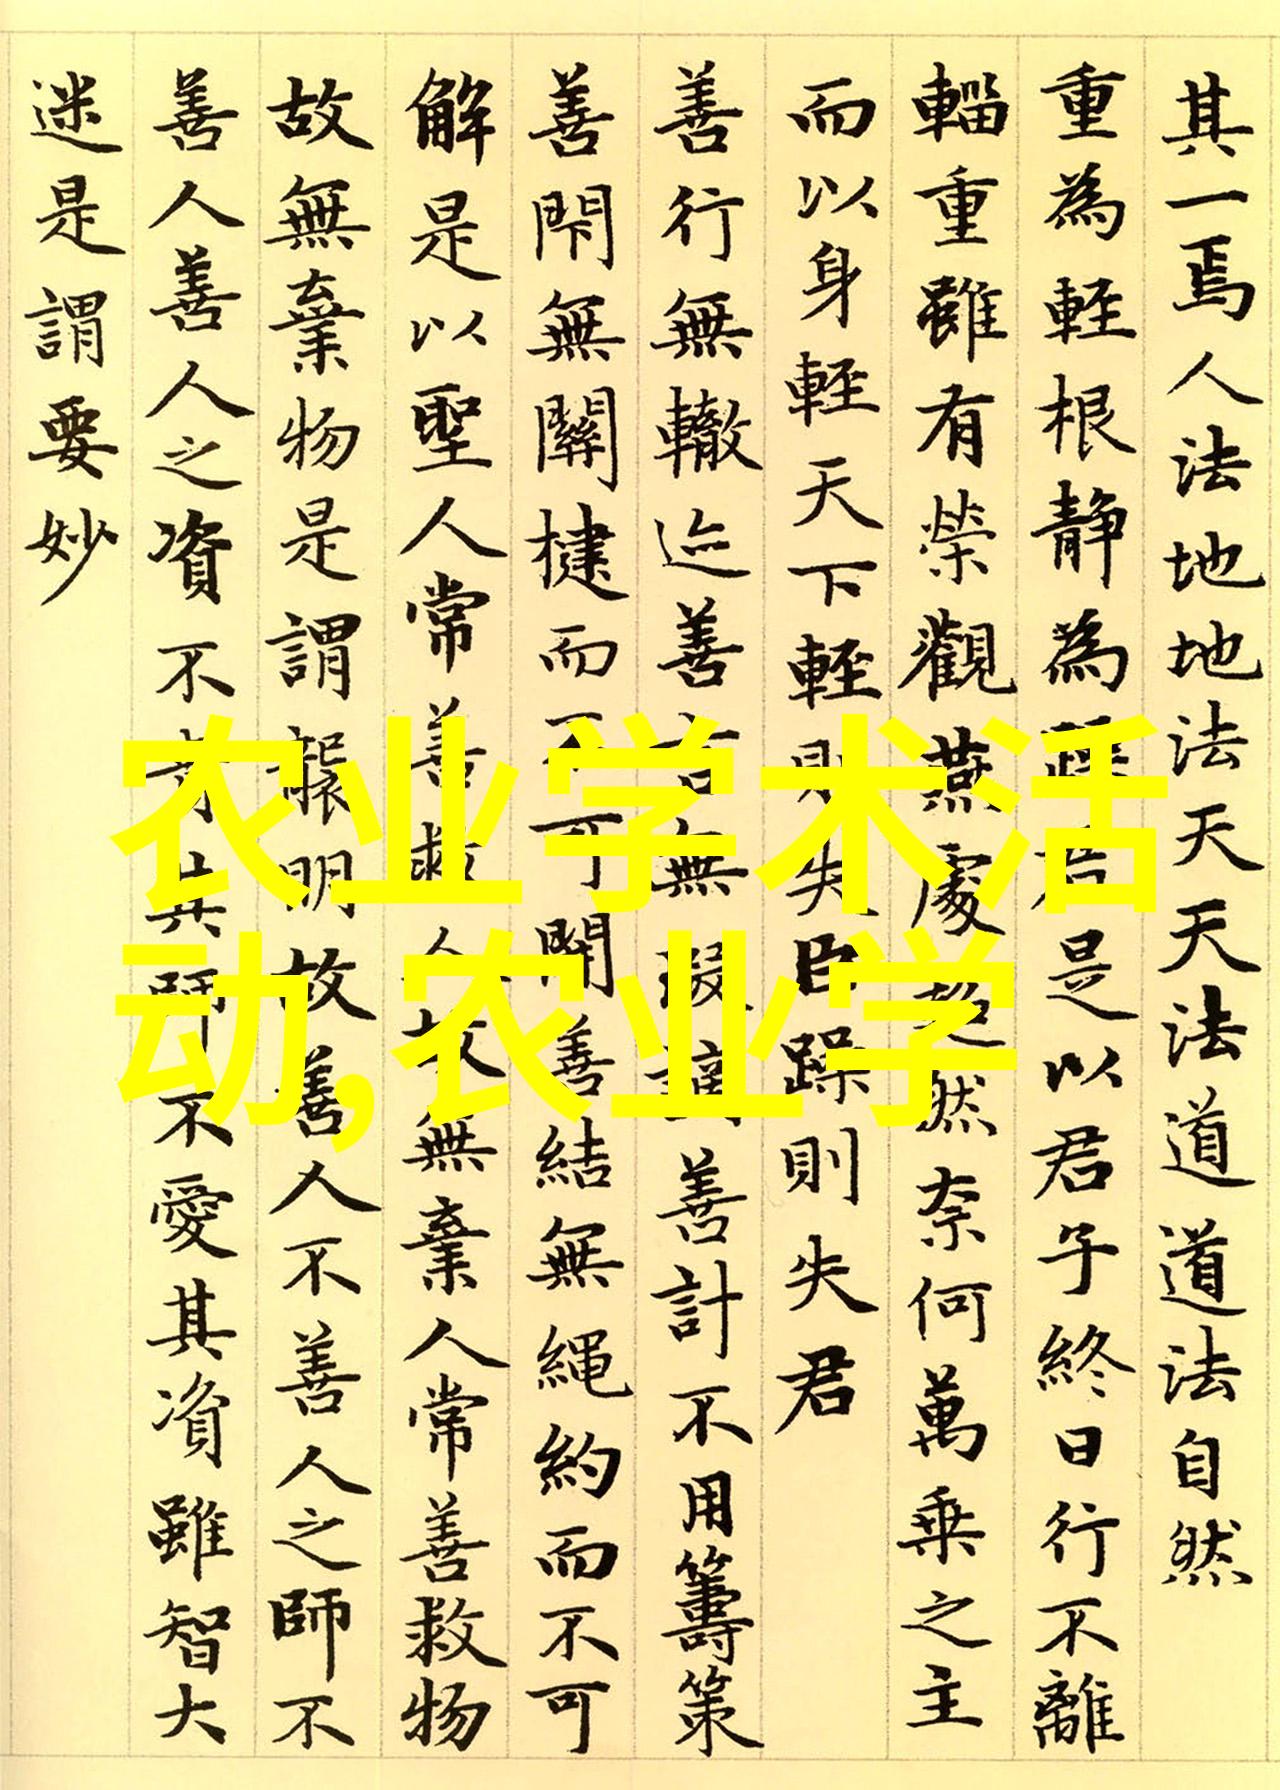 其一焉人法地地法天天法道道法自然
重為輕根静為躁君是以君子終日行不離
輜重雖有榮觀燕處超然奈何萬乘之主
而以身輕天下輕則失臣躁則失君
善行無轍迹善言無瑕謫善計不用籌策
善閇無關楗而不可開善結無繩約而不可
解是以聖人常善救人故無棄人常善救物
故無棄物是謂襲明故善人不善人之師不
善人善人之資不貴其師不愛其資雖智大
迷是謂要妙
农业学术活
动,农业学